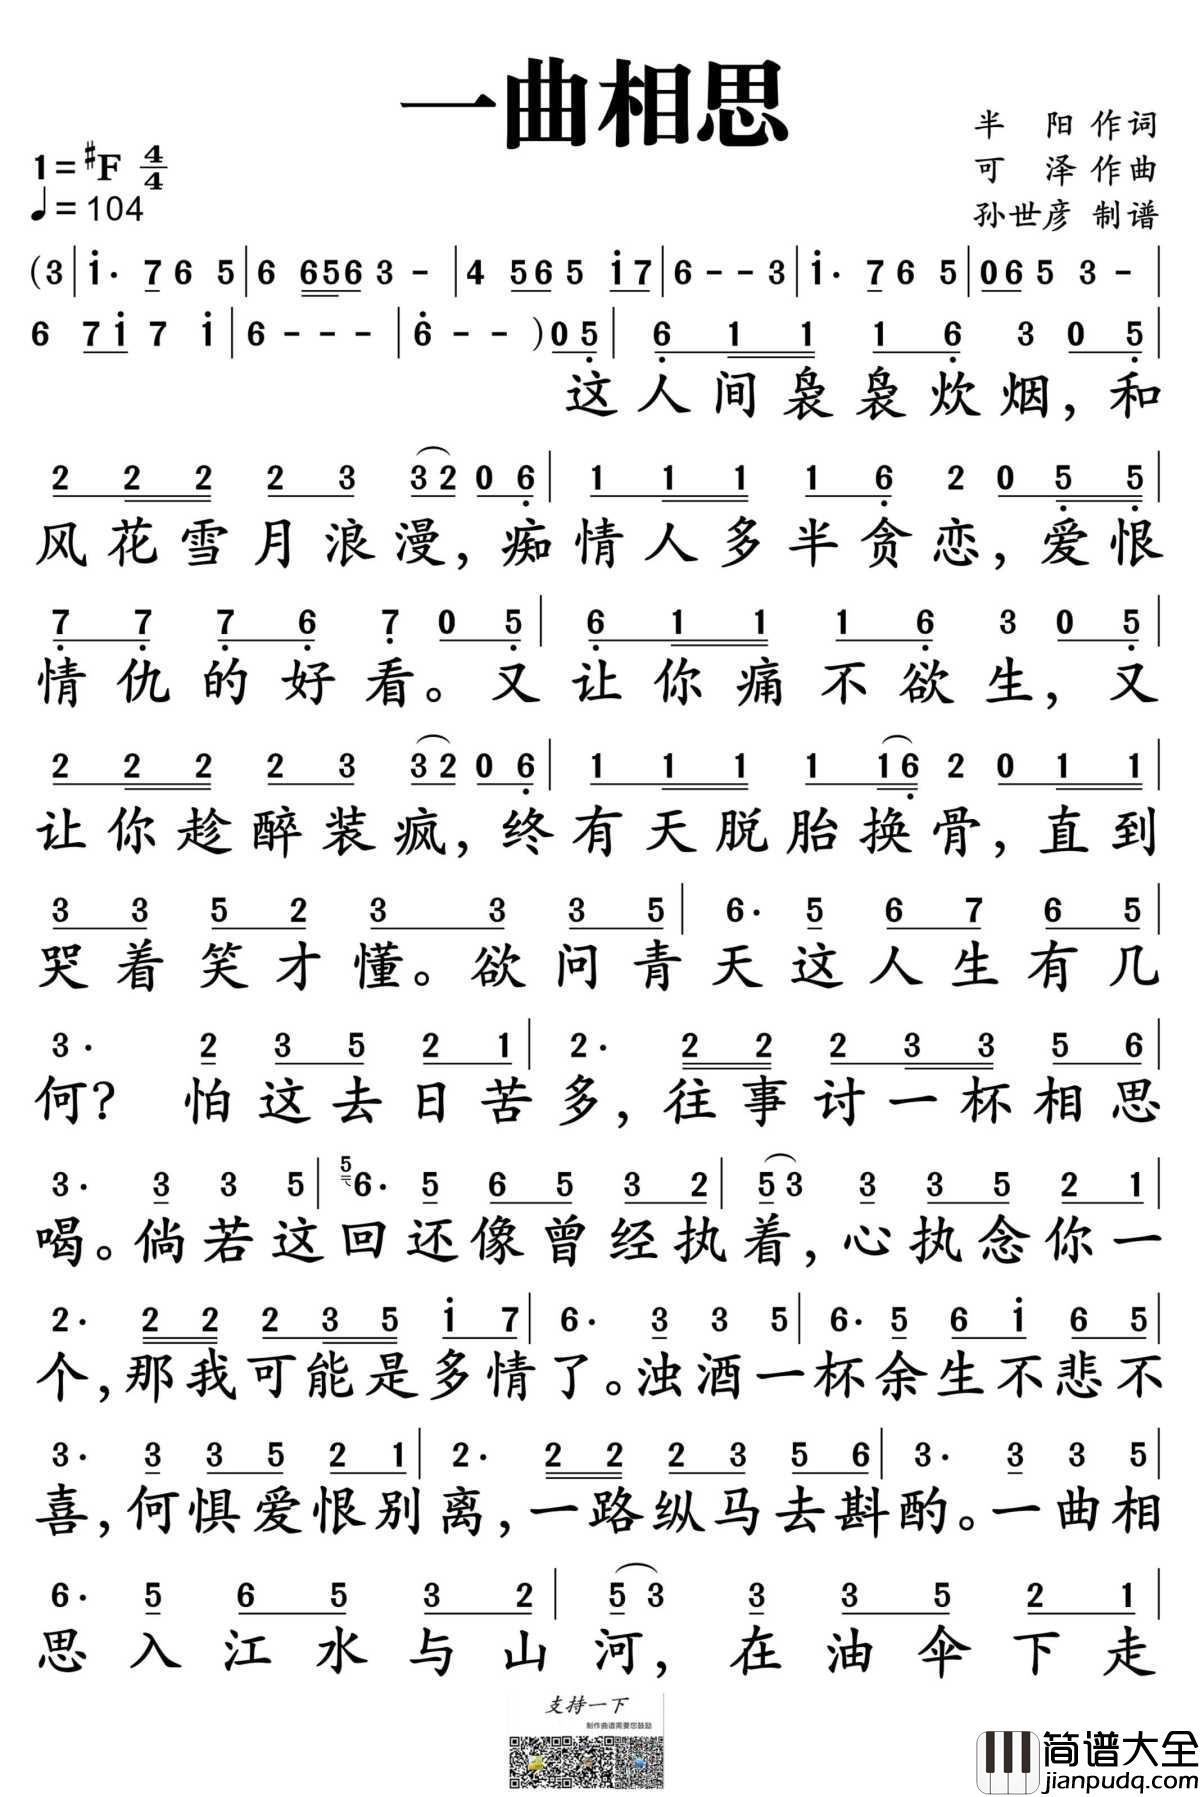 一曲相思
半 阳 作词
可 泽 作曲
孙世彦 制谱
1=♯F 4/4
♩=104
(3|i· 7 6 5|6 656 3 -|4 56 5 i7|6 - - 3|i· 7 6 5|06 5 3 -|
6 7i 7 i|6 - - -|6 - - )05|6 1 1 1 6 3 0 5|
这人间袅袅炊烟,和
2 2 2 2 3 32 0 6|1 1 1 1 6 2 0 5 5|
风花雪月浪漫,痴情人多半贪恋,爱恨
7 7 7 6 7 0 5|6 1 1 1 6 3 0 5|
情仇的好看。又让你痛不欲生,又
2 2 2 2 3 32 0 6|1 1 1 1 16 2 0 1 1|
让你趁醉装疯,终有天脱胎换骨,直到
3 3 5 2 3 3 3 5|6· 5 6 7 6 5|
哭着笑才懂。欲问青天这人生有几
3· 2 3 5 2 1|2· 2 2 2 3 3 5 6|
何? 怕这去日苦多,往事讨一杯相思
3· 3 3 5|5 6· 5 6 5 3 2|53 3 3 5 2 1|
喝。倘若这回还像曾经执着,心执念你一
2· 2 2 2 3 5 i 7|6· 3 3 5|6· 5 6 i 6 5|
个,那我可能是多情了。浊酒一杯余生不悲不
3· 3 3 5 2 1|2· 2 2 2 3 5 6|3· 3 3 5|
喜,何惧爱恨别离,一路纵马去斟酌。一曲相
6· 5 6 5 3 2|5 3 3 3 5 2 1|
思入江水与山河,在油伞下走
支持一下
制作曲谱需要您鼓励
简谱大全
jianpudq.com